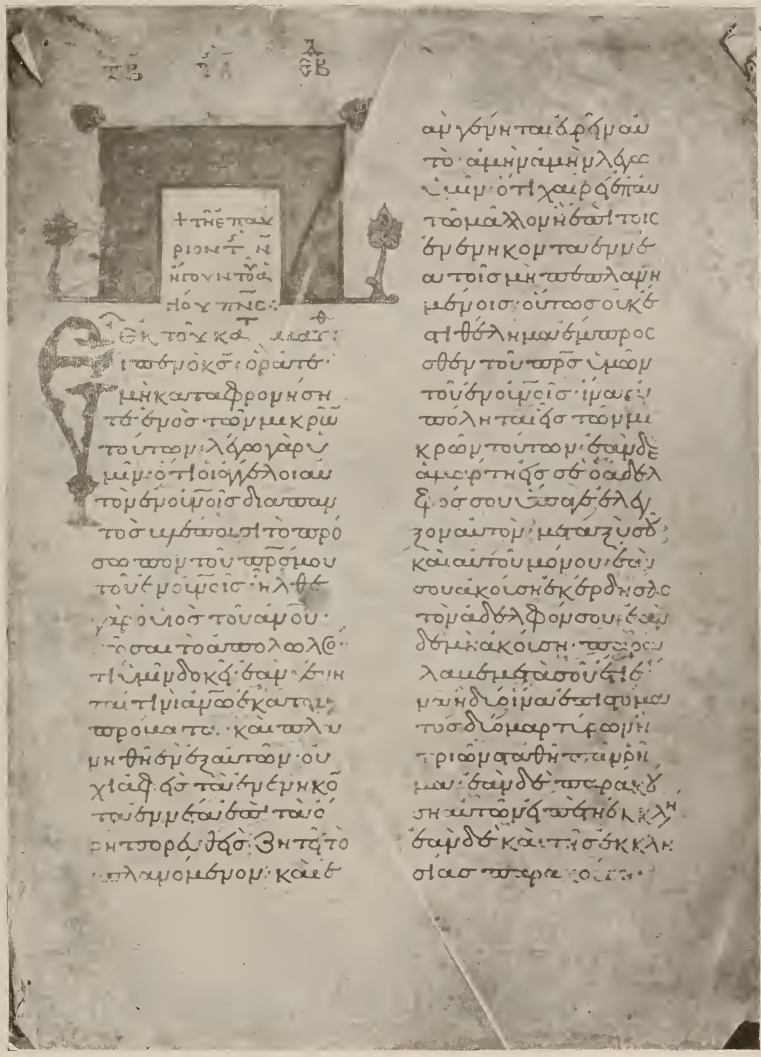 + τῆ ἐπαύ
ριον τ ν̅
ἤγουν τοῦ ἁ
γίου πν̅ς:
Ἐκ τοῦ κατ ματθ:
Εἶπεν ὁ κ̅ς· ὁρᾶτε·
μὴ καταφρονήση
τε ἑνὸς τῶν μικρῶ
τούτων· λέγω γὰρ ὑ
μῖν· ὅτι οἱ ἄγγελοι αυ
τῶν ἐν οὐ̅νοῖς διαπαν
τὸς βλέπουσι τὸ πρό
σωπον τοῦ πρ̅ς μου
τοῦ ἐν οὐ̅νοῖς· ἦλθε
γὰρ ὁ υἱὸς τοῦ ἀν̅ου·
σῶσαι τὸ ἀπολωλός·
τί ὑμῖν δοκεῖ· ἐὰν γένη
ται τινὶ ἀν̅ω ἑκατὸν
πρόβατα· καὶ πλα
νηθῆ ἓν ἐξ αὐτῶν· οὐ
χὶ ἀφεὶς τὰ ἐνενηκο̅
ταεννέα ἐπὶ τὰ ὄ
ρη πορευθεὶς ζητεῖ τὸ
πλανόμενον· καὶ ἐ
ὰν γένηται εὑρεῖν αυ
τὸ· ἀμὴν ἀμὴν λέγω
ὑμῖν· ὅτι χαίρει ἐπ αυ
τῶ μᾶλλον ἢ ἐπὶ τοῖς
ἐνενηκονταεννέ
α τοῖς μὴ πεπλανη
μένοις· οὕτως οὐκ ἔ
στι θέλημα ἔμπροσ
θεν τοῦ πρ̅ς ὑμῶν
τοῦ ἐν οὐ̅νοῖς· ἵνα ἀ
πόληται εἷς τῶν μι
κρῶν τούτων· ἐὰν δὲ
ἁμαρτήσει σε ὁ ἀδελ
φός σου ὕπαγε ἔλεγ
ξον αὐτὸν· μεταξὺ σοῦ
καὶ αὐτοῦ μόνου· ἐάν
σου ἀκούση ἐκέρδησας
τὸν ἀδελφόν σου· ἐὰν
δὲ μὴ ἀκούση· παρα
λαβε μετὰ σοῦ ἔτι ἕ
να ἢ δύο ἵνα ἐπὶ στόμα
τος δύο μαρτύρων ἢ
τριῶν σταθῆ πᾶν ῥῆ
μα· ἐὰν δὲ παρακού
ση αὐτῶν εἰπὲ τῆ ἐκκλη
ἐὰν δὲ καὶ τῆς ἐκκλη
σίας παρακούση·